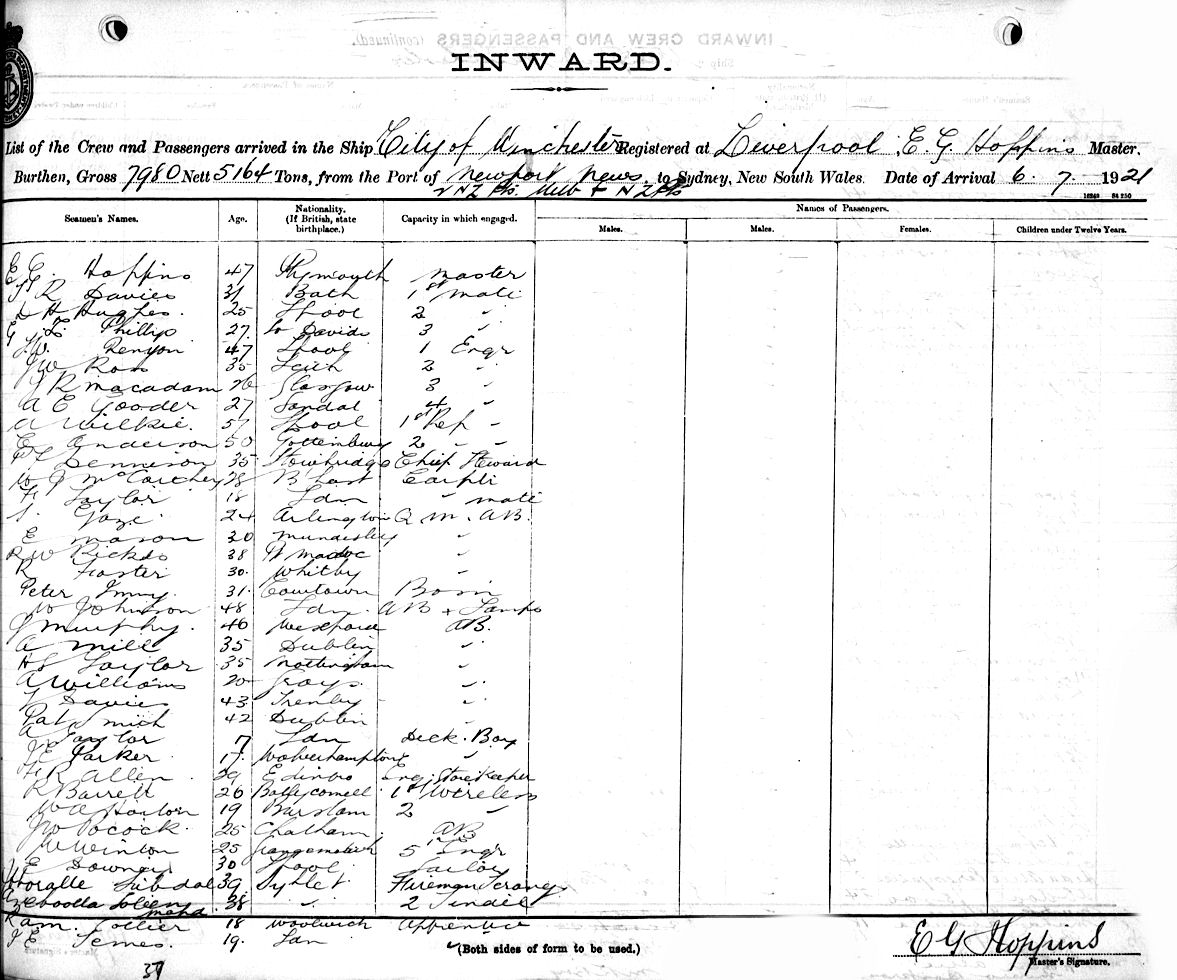 INWARD.
List of the Crew and Passengers arrived in the Ship City of Winchester Registered at Liverpool, E. G. Hoppins Master,
Burthen, Gross 7980 Nett 5164 Tons, from the Port of Newport News. to Sydney, New South Wales. Date of Arrival 6. 7. 1921
Melb + N Z Pts
16249 84 250
Seamen's Names. Age. Nationality. (If British, state birthplace.) Capacity in which engaged. Names of Passengers.
Males. Males. Females. Children under Twelve Years.
E G. Hoppins 47 Plymouth Master
R Davies 31 Bath 1st Mate
D H Hughes. 25 Lpool 2 "
G Phillip 27. St Davids 3 "
Kenyon 47 Lpool 1 Engr
J W Ross 35 Leith 2 "
J R Macadam 26 Glasgow 3 "
A E Gooder 27 Sandal 4 "
A Wilkie. 57 Lpool 1st Ref "
E Anderson 50 Gottenburg 2 " "
Dennison 35 Stourbridge Chief Steward
W J McCarthey 28 B'fast Carptr
F Taylor 18 Ldn " mate
Gaze 24 Arlington Q M. AB.
E Mason 30 Mundesley "
R W Rickds 38 Pt Madoc "
R Foster 30. Whitby "
Peter 31. Courtown Bosn
W Johnson 48 Ldn. AB + Lamps
J Murphy. 46 Wexford AB.
A Mill 35 Dublin "
H S Taylor 35 Nottingham "
A Williams 20 Grays "
Davies 43 "
Pat Smith 42 Dublin "
A Taylor 17 Ldn Deck. Boy
J E Parker 17. Wolverhampton "
F R Allen 29 Edinbro Eng. Storekeeper
R Barrett 26 Ballyconnell 1st Wireless
W A 19 Burslam 2 "
J W Pocock. 25 Chatham. AB
W Winton 25 Grangemouth 5th Engr
E Downey 30 Lpool Sailor
Subdal 39 Sylhet Fireman Serang
38 " 2 Tindel
Mahd
Ram. Collier 18 Woolwich Apprentice
J E Semes. 19. Ldn "
(Both sides of form to be used.)
E G Hoppins
Master's Signature.
37